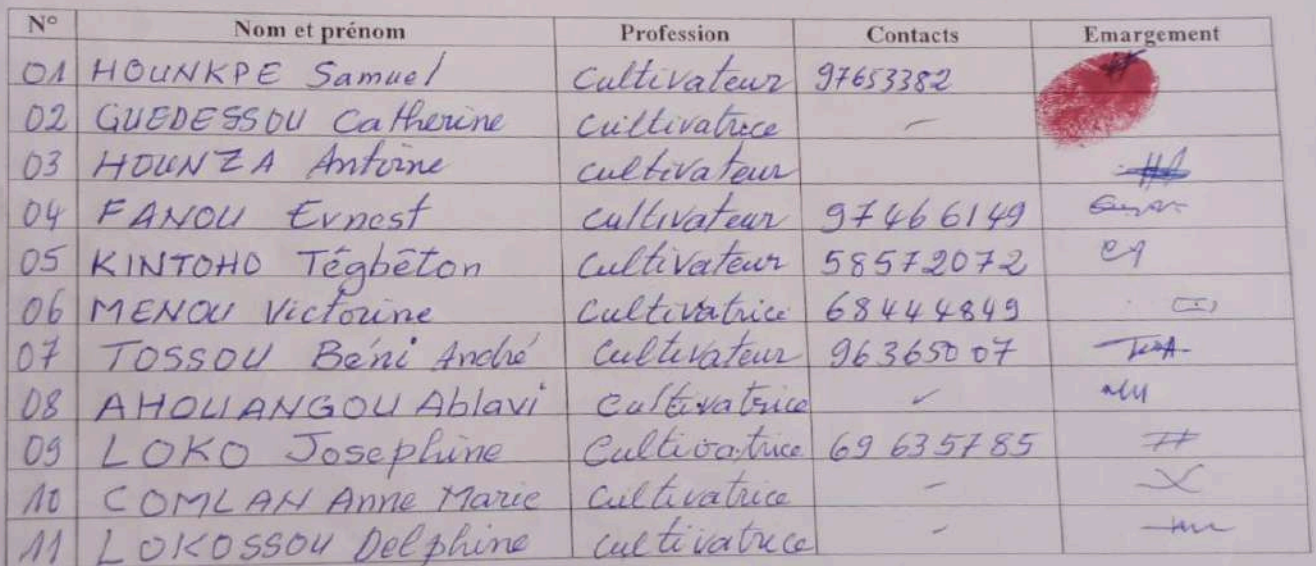 N° Nom et prénom Profession Contacts Emargement
01 HOUNKPE Samuel Cultivateur 97653382
02 GUEDESSOU Catherine Cultivatrice -
03 HOUNZA Antoine cultivateur
04 FANOU Ernest cultivateur 97466149
05 KINTOHO Tégbêton Cultivateur 58572072
06 MENOU Victorine Cultivatrice 68444849
07 TOSSOU Béni André Cultivateur 96365007
08 AHOUANGOU Ablavi Cultivatrice -
09 LOKO Josephine Cultivatrice 69635785
10 COMLAN Anne Marie Cultivatrice -
11 LOKOSSOU Delphine cultivatrice -